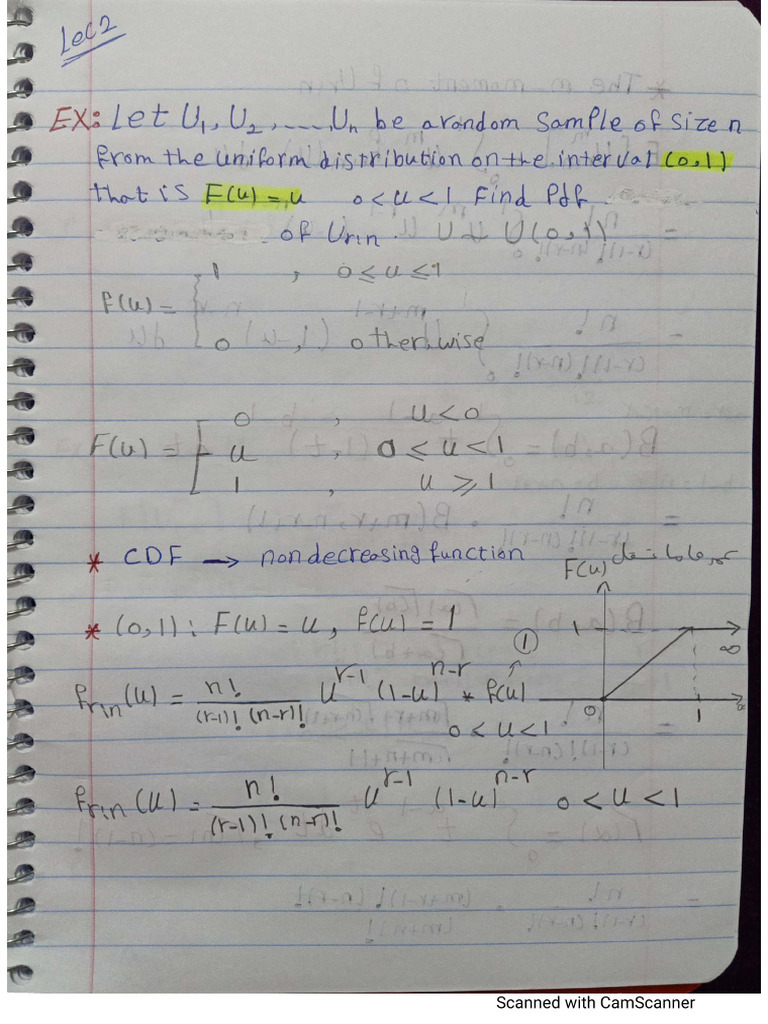 Lec 2
EX: Let U₁, U₂, ....., Uₙ be a random sample of size n
from the uniform distribution on the interval (0,1)
that is F(u) = u 0<u<1 Find Pdf
of U_{r:n}. U ~ U(0,1)
f(u) = { 1 , 0 ≤ u ≤ 1
0 , otherwise
F(u) = [ 0 , u < 0
u , 0 ≤ u < 1
1 , u ≥ 1
* CDF → nondecreasing function
* (0,1) : F(u) = u , f(u) = 1
f_{r:n}(u) = n! / (r-1)! (n-r)! u^{r-1} (1-u)^{n-r} * f(u) ①
0 < u < 1
F(u)
1
∞
0
1
f_{r:n}(u) = n! / (r-1)! (n-r)! u^{r-1} (1-u)^{n-r} 0 < u < 1
Scanned with CamScanner